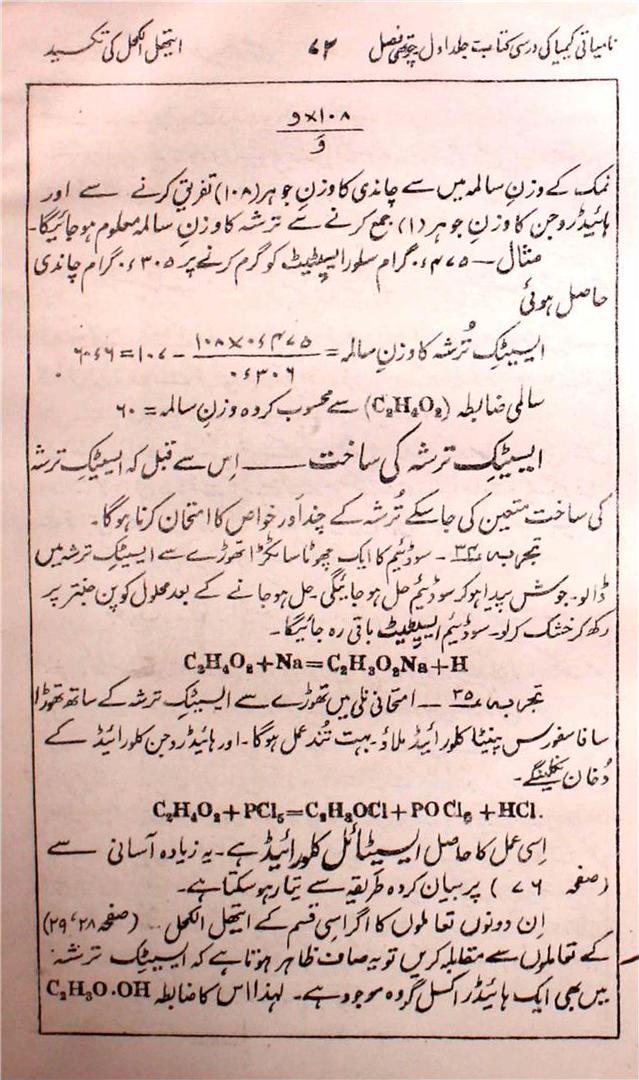 نامیاتی کیمیا کی درسی کتاب جلد اول چوتھی فصل ۷۳ ایتھل الکحل کی تکسید
۱۰۸×و
وَ
نمک کے وزنِ سالمہ میں سے چاندی کا وزنِ جوہر (۱۰۸) تفریق کرنے سے اور
ہائیڈروجن کا وزنِ جوہر (۱) جمع کرنے سے ترشہ کا وزنِ سالمہ معلوم ہو جائیگا۔
مثال — ۴۷۵ء۰ گرام سلور ایسیٹیٹ کو گرم کرنے پر ۳۰۵ء۰ گرام چاندی
حاصل ہوئی
ایسیٹک تُرشہ کا وزنِ سالمہ = ۱۰۸×۰ء۴۷۵ / ۰ء۳۰۶ − ۱۰۷ = ۶۰ء۶
سالمی ضابطہ (C₂H₄O₂) سے محسوب کردہ وزنِ سالمہ = ۶۰
ایسیٹک ترشہ کی ساخت — اِس سے قبل کہ ایسیٹک ترشہ
کی ساخت متعین کی جا سکے تُرشہ کے چند اَور خواص کا امتحان کرنا ہوگا۔
تجربہ ۳۴ — سوڈیئم کا ایک چھوٹا سا ٹکڑا تھوڑے سے ایسیٹک ترشہ میں
ڈالو۔ جوش پیدا ہو کر سوڈیئم حل ہو جائیگی۔ حل ہو جانے کے بعد محلول کو پن جنتر پر
رکھ کر خشک کرلو۔ سوڈیئم ایسیٹیٹ باقی رہ جائیگا۔
C₂H₄O₂+Na=C₂H₃O₂Na+H
تجربہ ۳۵ — امتحانی نلی میں تھوڑے سے ایسیٹک ترشہ کے ساتھ تھوڑا
سا فاسفورس پینٹا کلورائیڈ ملاؤ۔ بہت تُند عمل ہوگا۔ اور ہائیڈروجن کلورائیڈ کے
دُخان نکلینگے۔
C₂H₄O₂+PCl₅=C₂H₃OCl+POCl₃+HCl.
اِسی عمل کا حاصل ایسیٹائل کلورائیڈ ہے۔ یہ زیادہ آسانی سے
(صفحہ ۷۶) پر بیان کردہ طریقہ سے تیار ہو سکتا ہے۔
اِن دونوں تعاملوں کا اگر اسی قسم کے ایتھل الکحل (صفحہ ۲۸، ۲۹)
کے تعاملوں سے مقابلہ کریں تو یہ صاف ظاہر ہوتا ہے کہ ایسیٹک ترشہ
میں بھی ایک ہائیڈراکسل گروہ موجود ہے۔ لہذا اس کا ضابطہ C₂H₃O.OH